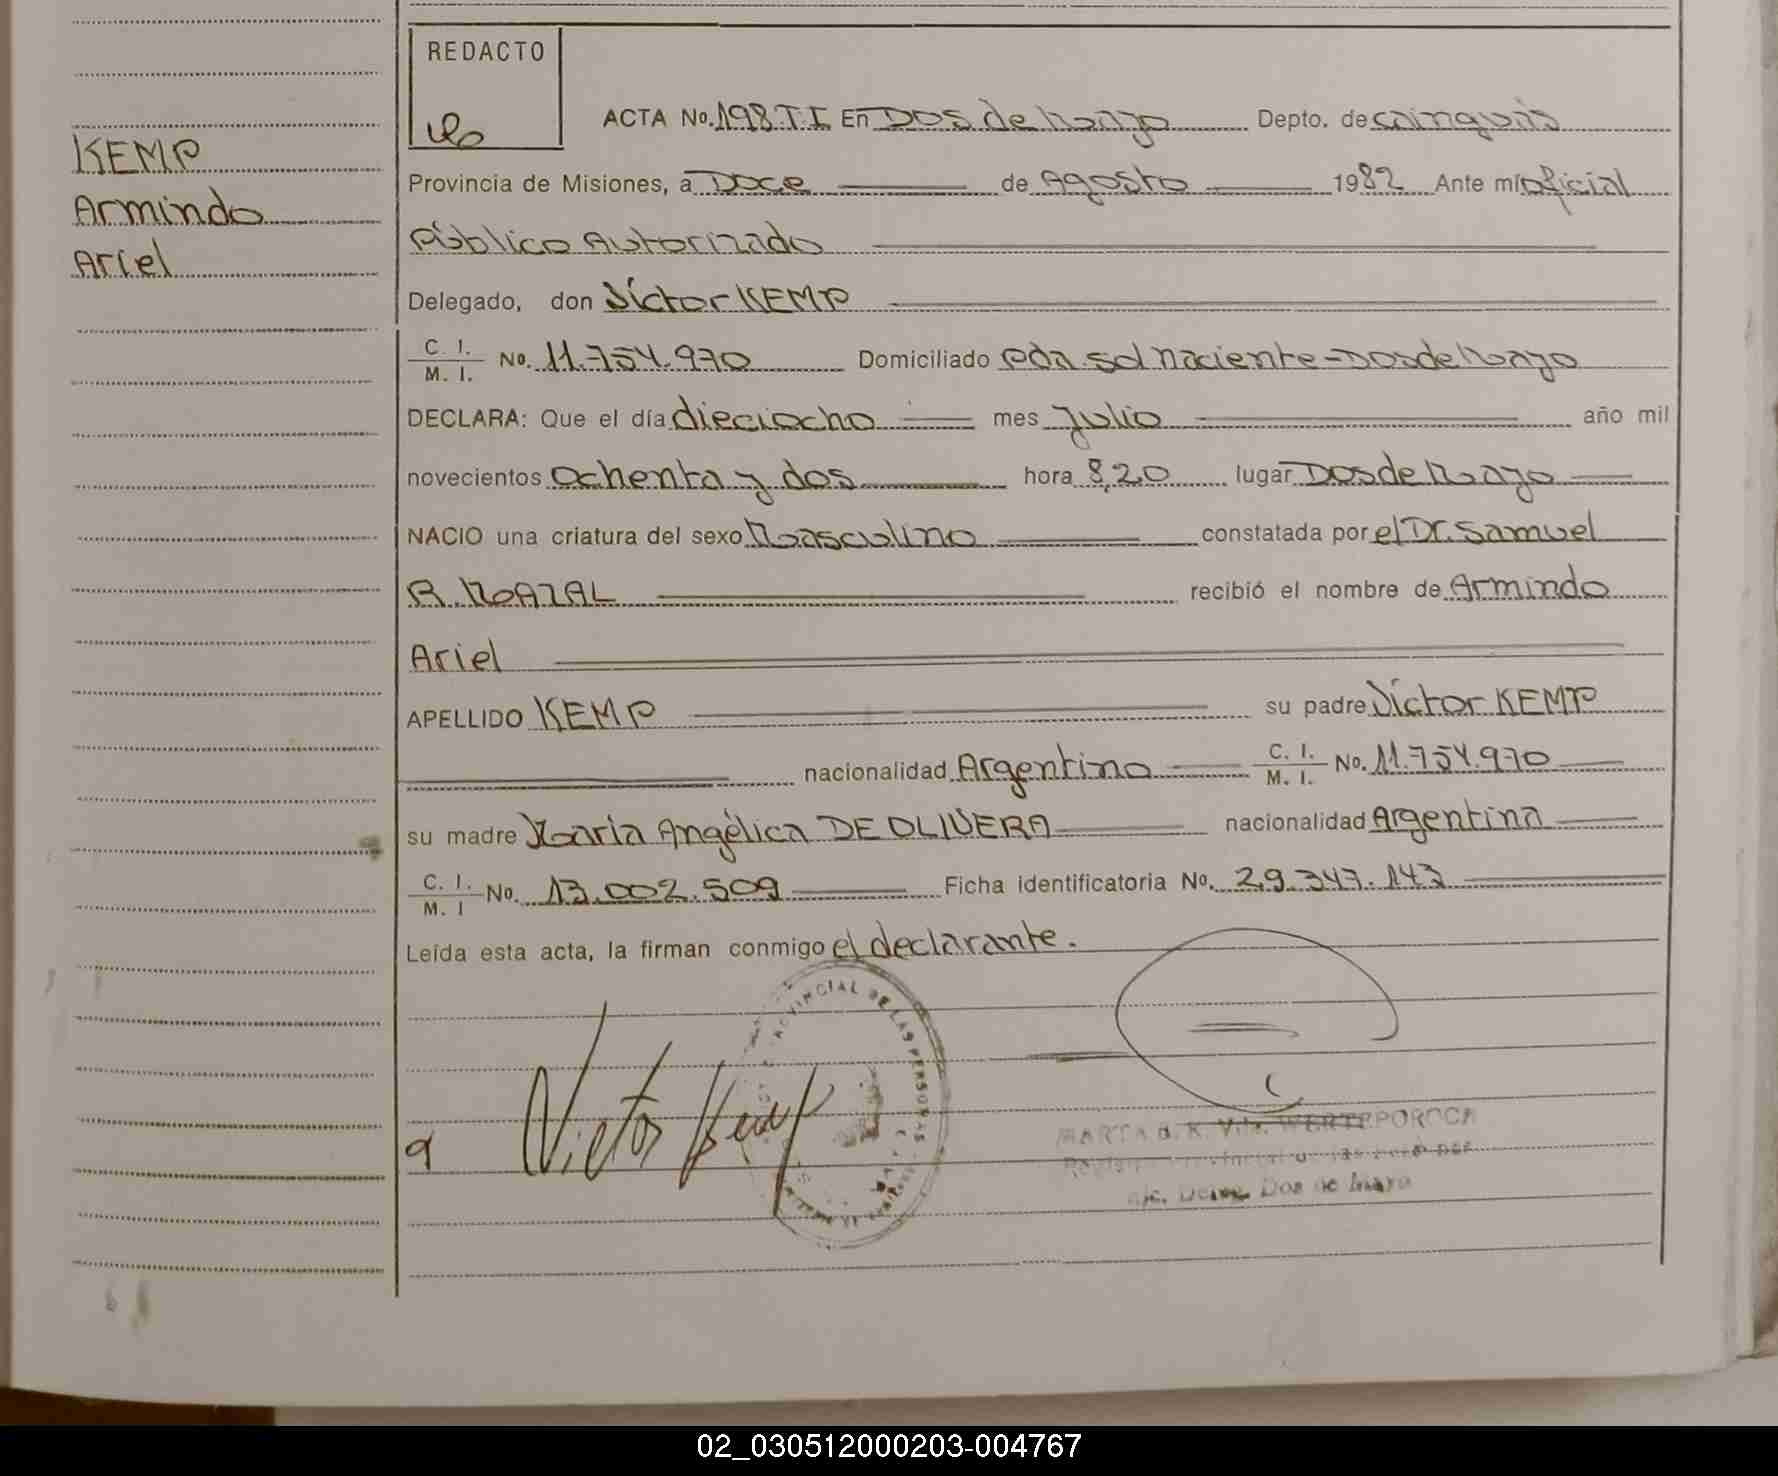 REDACTO
ACTA No. 198 T.I En Dos de Mayo Depto. de Cainguás
KEMP
Armindo
Ariel
Provincia de Misiones, a Doce de Agosto 1982 Ante mí oficial
Público Autorizado
Delegado, don Víctor KEMP
C. I.
M. I. No. 11.754.970 Domiciliado Pda. sol naciente - Dos de Mayo
DECLARA: Que el día dieciocho mes Julio año mil
novecientos ochenta y dos hora 8,20 lugar Dos de Mayo
NACIO una criatura del sexo Masculino constatada por el Dr. Samuel
R. MOAZAL recibió el nombre de Armindo
Ariel
APELLIDO KEMP su padre Víctor KEMP
nacionalidad Argentino C. I.
M. I. No. 11.754.970
su madre María Angélica DE OLIVERA nacionalidad Argentina
C. I.
M. I No. 13.002.509 Ficha identificatoria No. 29.347.143
Leída esta acta, la firman conmigo el declarante.
PROVINCIAL DE LAS PERSONAS
Victor Kemp
MARTA K. Vda. WERTEPOROCH
Dos de Mayo
02_030512000203-004767